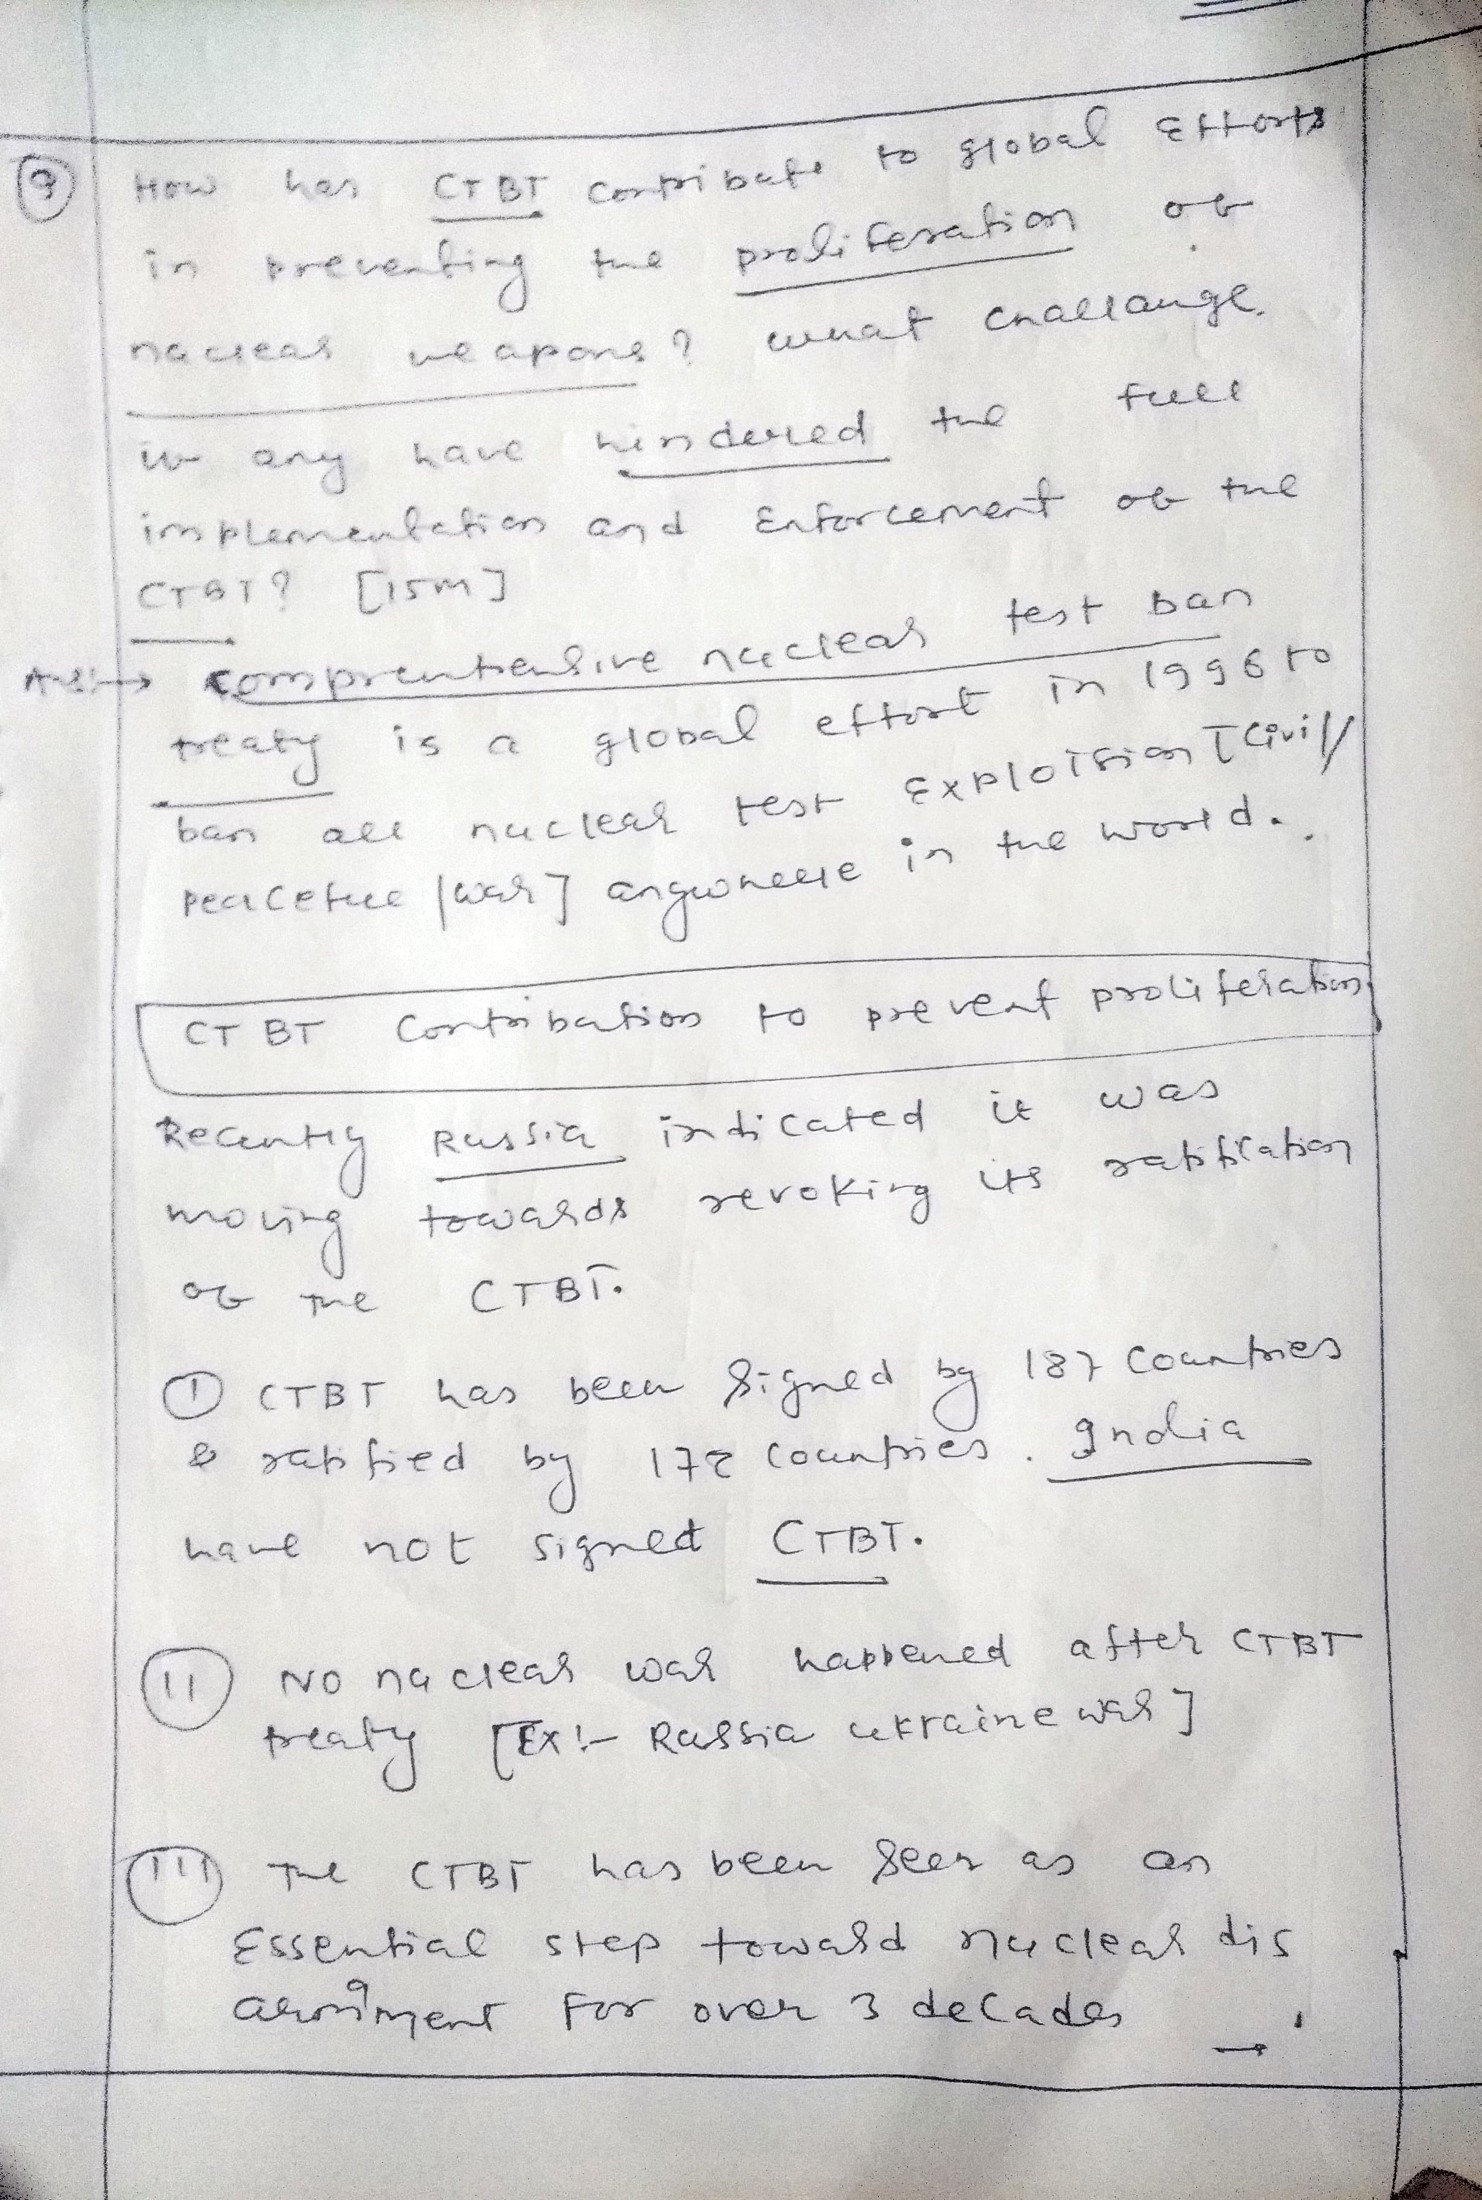 9 How has CTBT contribute to global Efforts
in preventing the proliferation of
nuclear weapons? what challange
if any have hindered the full
implementation and Enforcement of the
CTBT? [15m]
Ans:→ comprehensive nuclear test ban
treaty is a global effort in 1996 to
ban all nuclear test Explotsion [civil/
peaceful/war] anywhere in the world.
CTBT Contribution to prevent proliferation
Recently Russia indicated it was
moving towards revoking its ratification
of the CTBT.
I CTBT has been signed by 187 Countries
& ratified by 178 Countries. India
have not signed CTBT.
II No nuclear war happened after CTBT
treaty [Ex:- Russia ukraine war]
III The CTBT has been seen as an
Essential step toward nuclear dis
armment for over 3 decades →